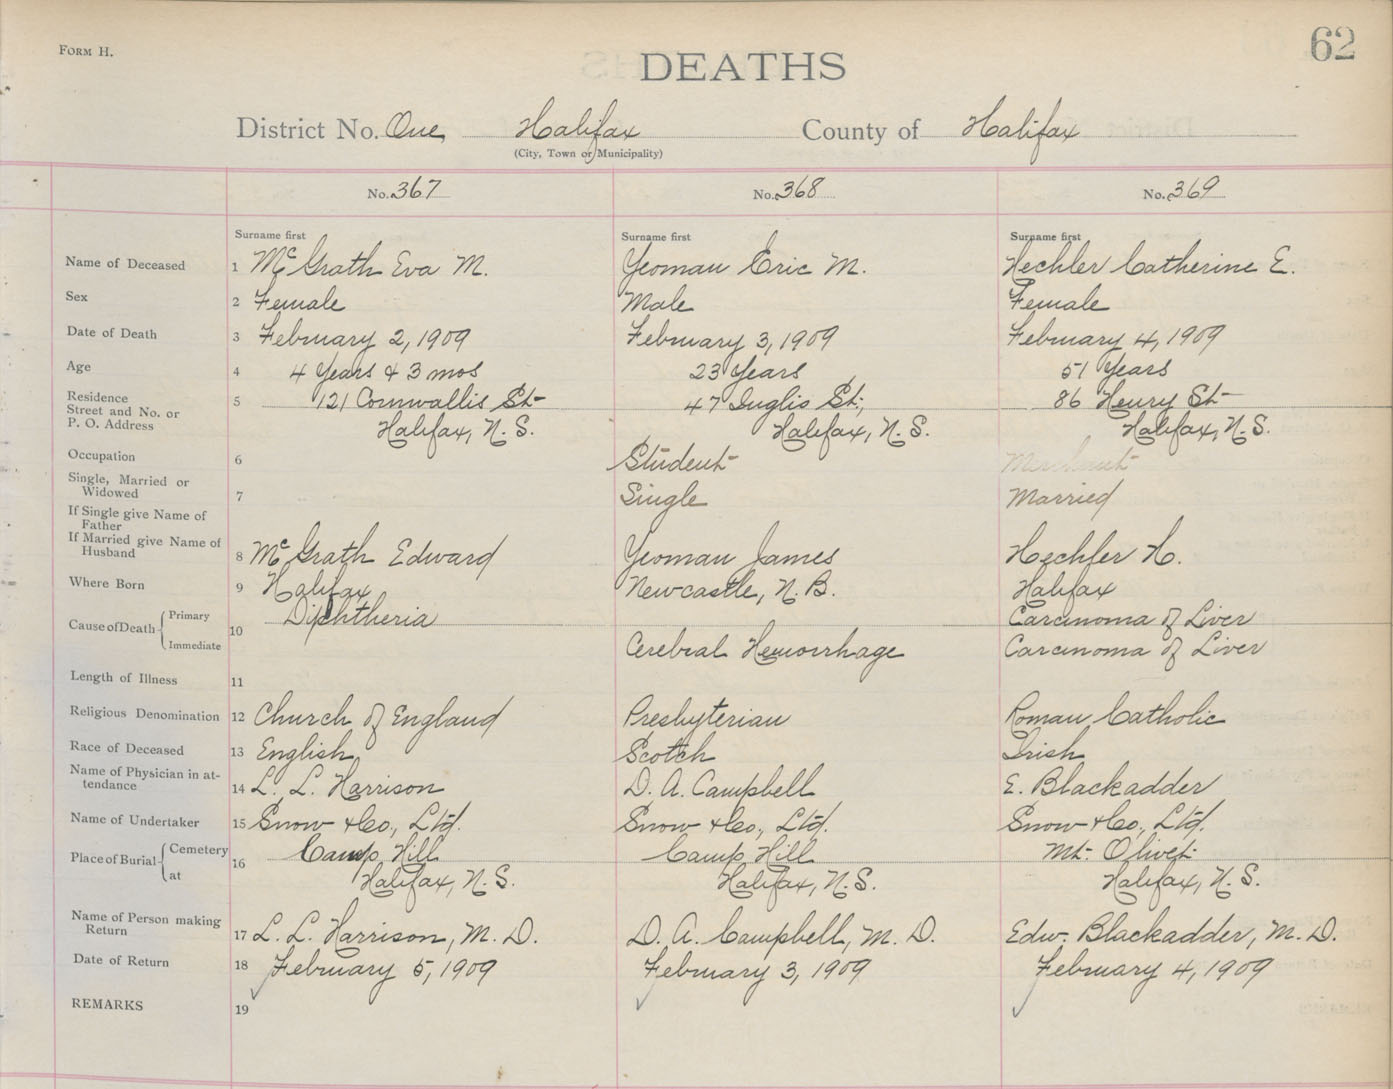 Form H.
62
DEATHS
District No. One Halifax County of Halifax
(City, Town or Municipality)
No. 367 No. 368 No. 369
Surname first Surname first Surname first
Name of Deceased 1 McGrath Eva M. Yeoman Eric M. Hechler Catherine E.
Sex 2 Female Male Female
Date of Death 3 February 2, 1909 February 3, 1909 February 4, 1909
Age 4 4 Years & 3 mos 23 Years 51 Years
Residence Street and No. or P. O. Address 5 121 Cornwallis St 47 Inglis St., 86 Henry St
Halifax, N. S. Halifax, N. S. Halifax, N. S.
Occupation 6 Student Merchant
Single, Married or Widowed 7 Single Married
If Single give Name of Father
If Married give Name of Husband 8 McGrath Edward Yeoman James Hechler H.
Where Born 9 Halifax Newcastle, N. B. Halifax
Cause of Death Primary Diphtheria Carcinoma of Liver
10
Immediate Cerebral Hemorrhage Carcinoma of Liver
Length of Illness 11
Religious Denomination 12 Church of England Presbyterian Roman Catholic
Race of Deceased 13 English Scotch Irish
Name of Physician in attendance 14 L. L. Harrison D. A. Campbell E. Blackadder
Name of Undertaker 15 Snow & Co., Ltd. Snow & Co., Ltd. Snow & Co., Ltd.
Place of Burial Cemetery 16 Camp Hill Camp Hill Mt. Olivet
at Halifax, N. S. Halifax, N. S. Halifax, N. S.
Name of Person making Return 17 L. L. Harrison, M. D. D. A. Campbell, M. D. Edw. Blackadder, M. D.
Date of Return 18 February 5, 1909 February 3, 1909 February 4, 1909
REMARKS 19